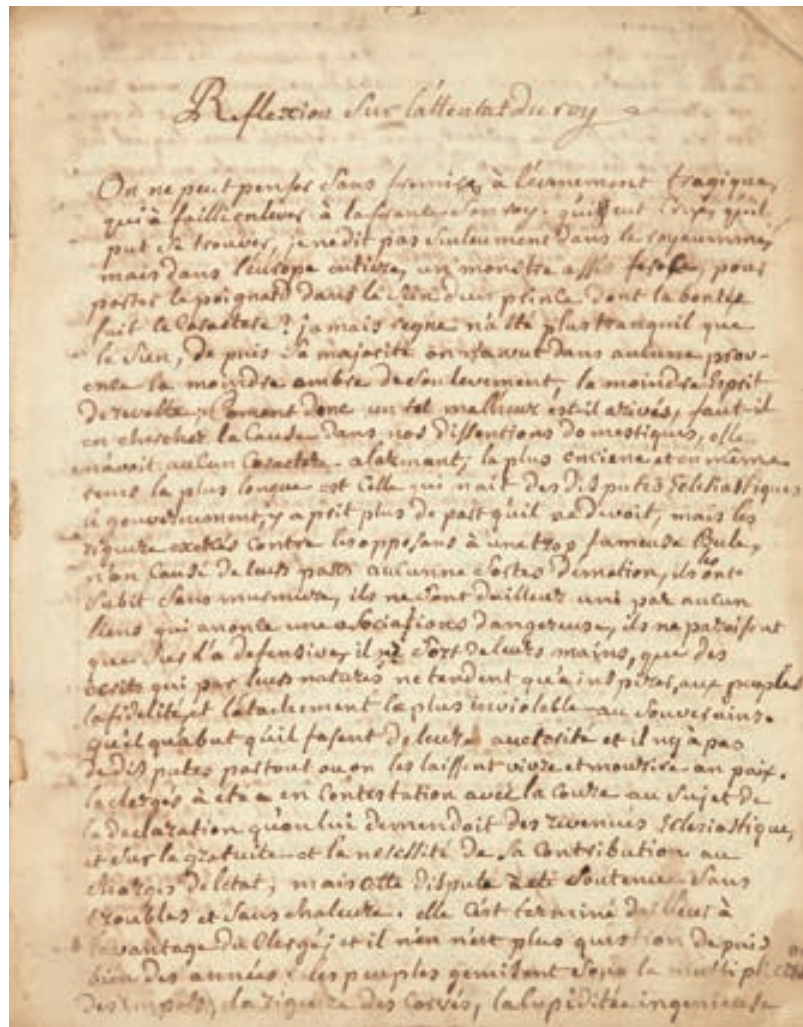 Reflexion Sur lattentat du roy
On ne peut penser Sans fremire à lévenement tragique,
qui à failli enlever à la france Son roy. qui eut Croys quil
put Se trouver, je ne dit pas Seuleument dans le royeaumme,
mais dans l'éurope entiere, un monstre assés feroce, pour
porter le poignard dans le Sein d'un prince dont la bontée
fait le Caractere? jamais regne n'a été plus tranquil que
le Sien, depuis Sa majorité on n'a vut dans aucune prov-
ence la moindre ombre de Soulevement, le moindre Esprit
de revolte; Coment donc un tel malheur est il arivés, faut-il
en chercher la Cause dans nos dissentions domestiques, elle
n'avoit aucun Caractere alarmant; la plus enciene et en même
tems la plus longue est Celle qui nait des disputes Eclesiastiques
le gouvernement, y a prit plus de part qu'il ne devoit, mais les
rigueure exercés Contre les opposans à une trop fameuse Bule,
n'on Causé de leurs parts aucunne Sortes démotion, ils les ont
Subit Sans murmure, ils ne Sont dailleur uni par aucun
liens qui anonce une associations dangereuse, ils ne paraissent
que Sur la defensive, il ne Sort de leurs mains, que des
écrits qui par leurs naturés ne tendent qu'a inspirer, aux peuples
la fidelité et latachement la plus inviolable au Souverains.
quelquabut quil fasent de leure auctorité et il ny à pas
de disputes partout ou on les laissent vivre et mourire an paix.
le clergés à été en Contestation avec la Coure au Sujet de
la declaration qu'on lui demendoit des revenues Eclesiastique,
et Sur la gratuité et la nésessité de Sa Contribution au
charges de l'état, mais cette dispute à été Soutenue Sans
troubles et Sans chaleure. elle C'est terminé dailleur à
lavantage du Clergé; et il n'en n'est plus question depuis
bien des années les peuples gemissent Sous la multiplicité
des impots, la rigueure des Corvés, la Cupiditée ingenieuse